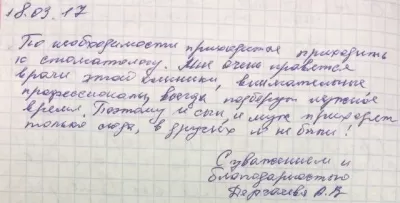 18.09.17
По необходимости приходится приходить
к стоматологу. Мне очень нравятся
врачи этой клиники, внимательные
профессионалы, всегда подберут нужное
время. Поэтому и сын, и муж приходят
только сюда, в других и не были!
С уважением и
благодарностью
А.В